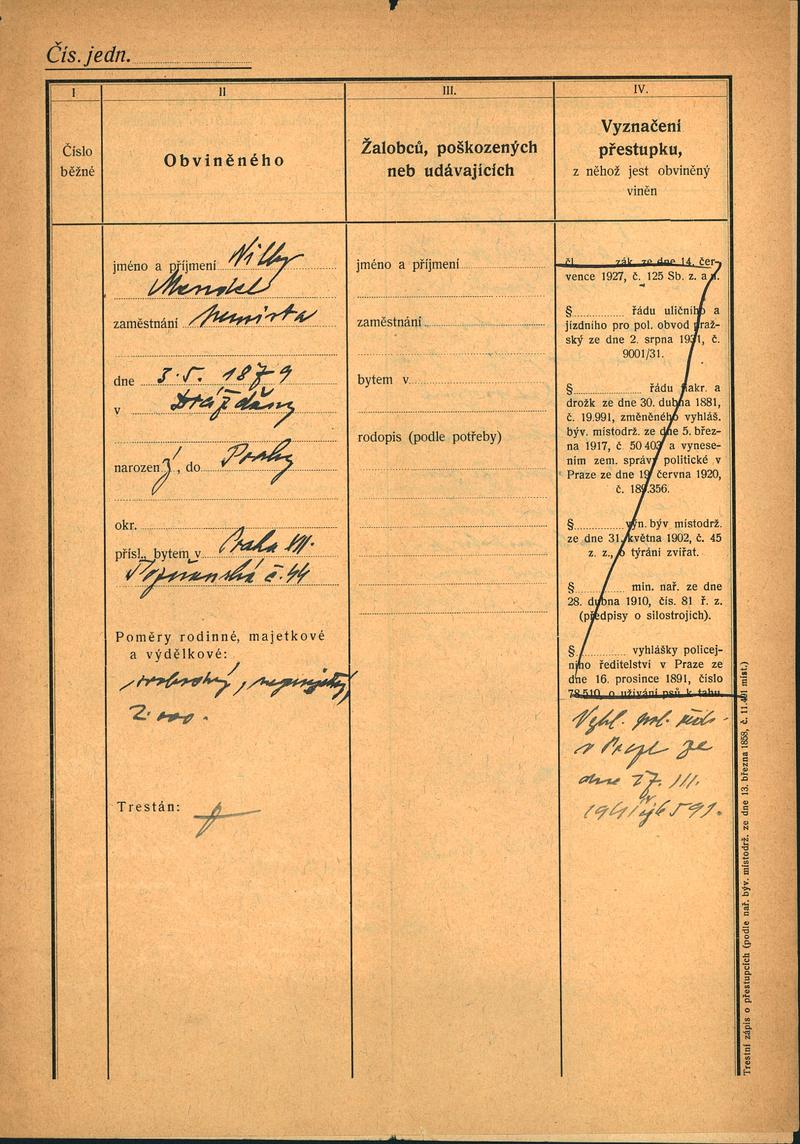 Čís. jedn.
I
II
III.
IV.
Číslo
běžné
Obviněného
Žalobců, poškozených
neb udávajících
Vyznačení
přestupku,
z něhož jest obviněný
viněn
jméno a příjmení Willy
Mendel
zaměstnání
dne 3.5. 1879
v Drážďany
narozený, do Prahy
okr.
přísl., bytem v Praha VII.
Poznaňská č. 44
Poměry rodinné, majetkové
a výdělkové:
svobodný, nemajetný,
2.000.
Trestán:
jméno a příjmení
zaměstnání
bytem v
rodopis (podle potřeby)
čl. zák. ze dne 14. čer-
vence 1927, č. 125 Sb. z. a n.
§ řádu uličního a
jízdního pro pol. obvod praž-
ský ze dne 2. srpna 1931, č.
9001/31.
§ řádu fiakr. a
drožk ze dne 30. dubna 1881,
č. 19.991, změněného vyhláš.
býv. místodrž. ze dne 5. břez-
na 1917, č. 50 403 a vynese-
ním zem. správy politické v
Praze ze dne 19. června 1920,
č. 189.356.
§ výn. býv místodrž.
ze dne 31. května 1902, č. 45
z. z., o týrání zvířat.
§ min. nař. ze dne
28. dubna 1910, čís. 81 ř. z.
(předpisy o silostrojích).
§ vyhlášky policej-
ního ředitelství v Praze ze
dne 16. prosince 1891, číslo
78.510, o užívání psů k tahu.
Vyhl. pol. řed.
v Praze ze
dne 27. III.
1941
Trestní zápis o přestupcích (podle nař. býv. místodrž. ze dne 13. března 1858, č. 11.491 míst.)